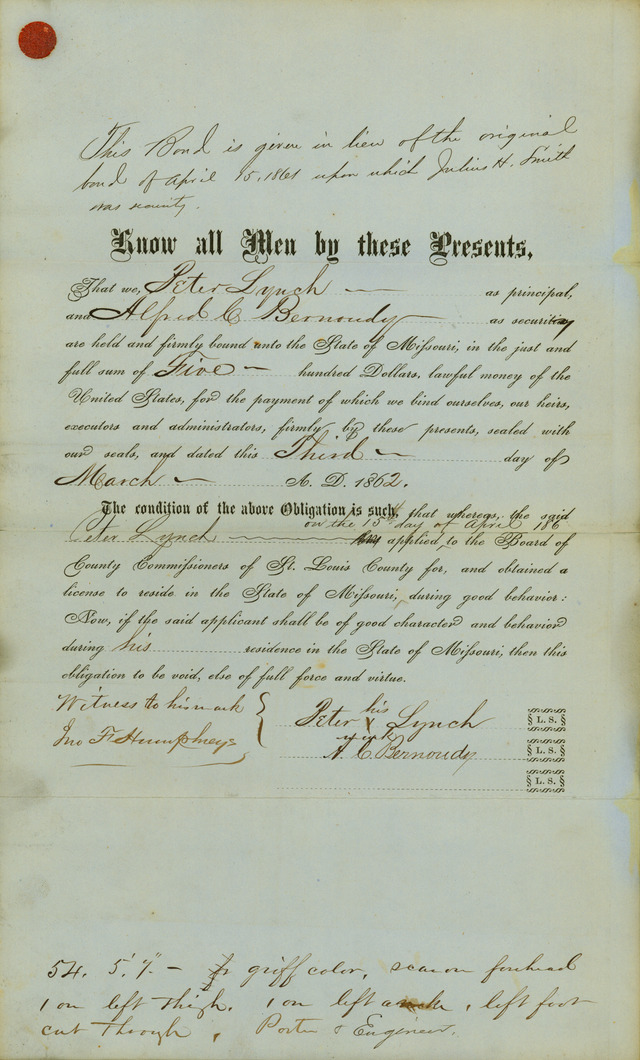 This Bond is given in lieu of the original
bond of April 15, 1861 upon which Julius H. Smith
was security.
Know all Men by these Presents,
That we, Peter Lynch as principal,
and Alfred C Bernoudy as security
are held and firmly bound unto the State of Missouri, in the just and
full sum of Five hundred Dollars, lawful money of the
United States, for the payment of which we bind ourselves, our heirs,
executors and administrators, firmly by these presents, sealed with
our seals, and dated this Third day of
March A. D. 1862.
The condition of the above Obligation is such, that whereas, the said
on the 15th day of April 186
Peter Lynch applied to the Board of
County Commissioners of St. Louis County for, and obtained a
license to reside in the State of Missouri, during good behavior:
Now, if the said applicant shall be of good character and behavior
during his residence in the State of Missouri, then this
obligation to be void, else of full force and virtue.
Witness to his mark
Jno F Humphreys
his
Peter X Lynch
mark
A. C. Bernoudy
L. S.
L. S.
L. S.
54. 5'.7". - griff color, scar on forehead
1 on left thigh. 1 on left , left foot
cut through, Porter & Engineer.